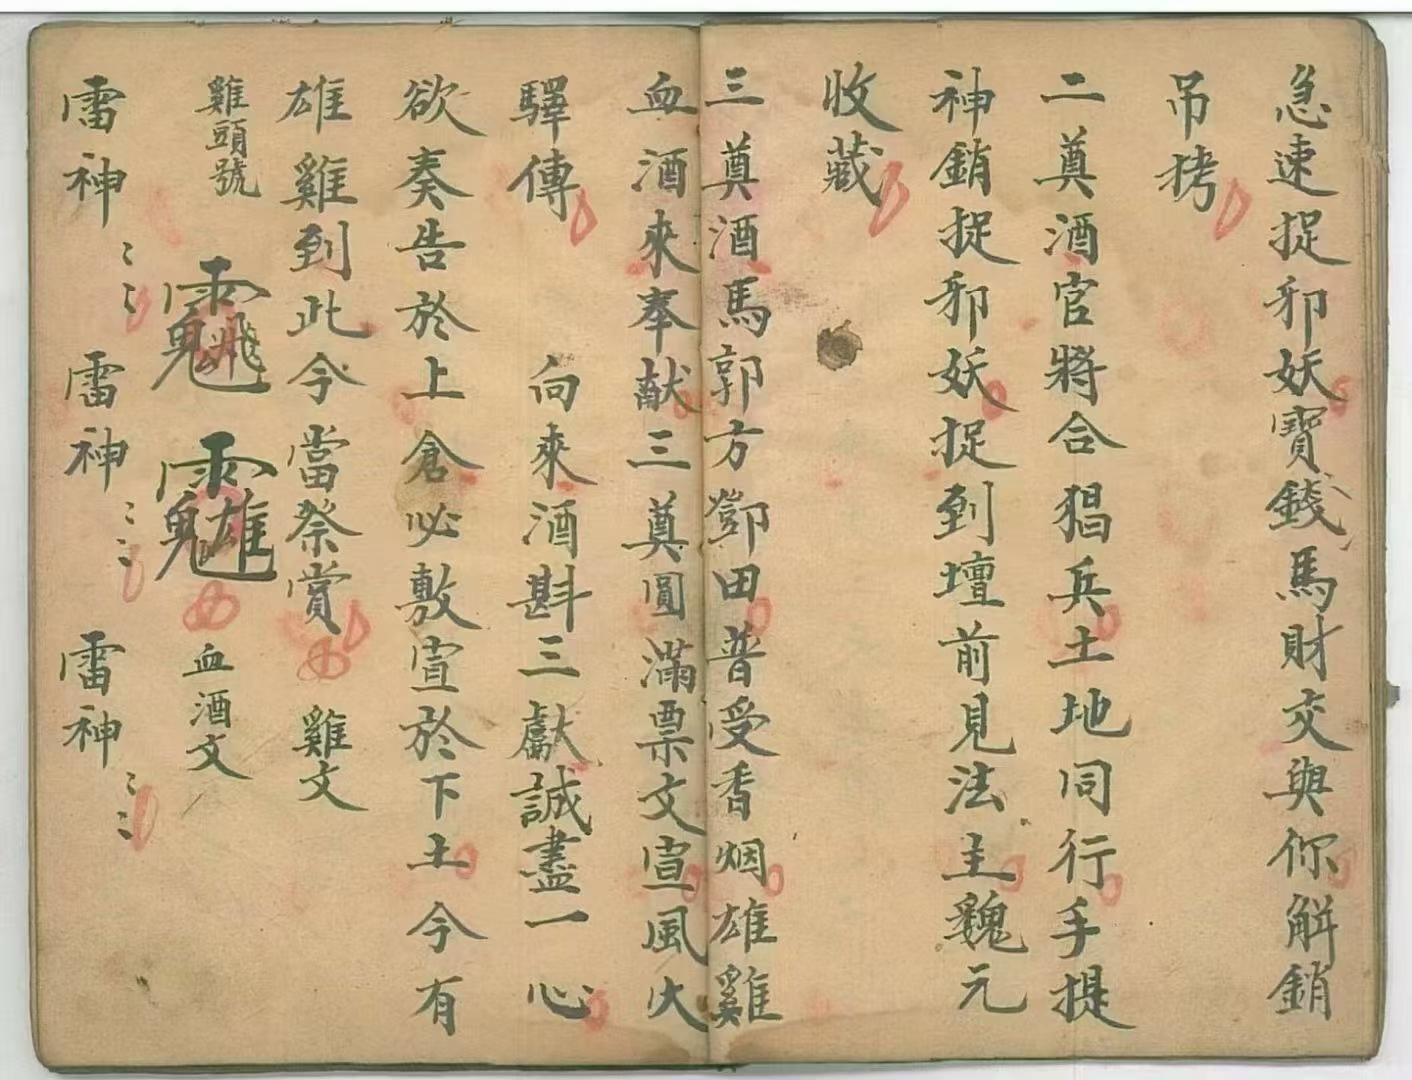 急速捉邪妖寳錢馬財交與你解銷
吊拷
二奠酒官將合猖兵土地同行手提
神銷捉邪妖捉到壇前見法主魏元
收藏
三奠酒馬郭方鄧田普受香烟雄雞
血酒來奉献三奠圓滿票文宣風火
驛傳 向來酒斟三獻誠盡一心
欲奏告於上倉必敷宣於下土今有
雄雞到此今當祭賞 雞文
雞頭號 血酒文
雷神〻 雷神〻 雷神〻